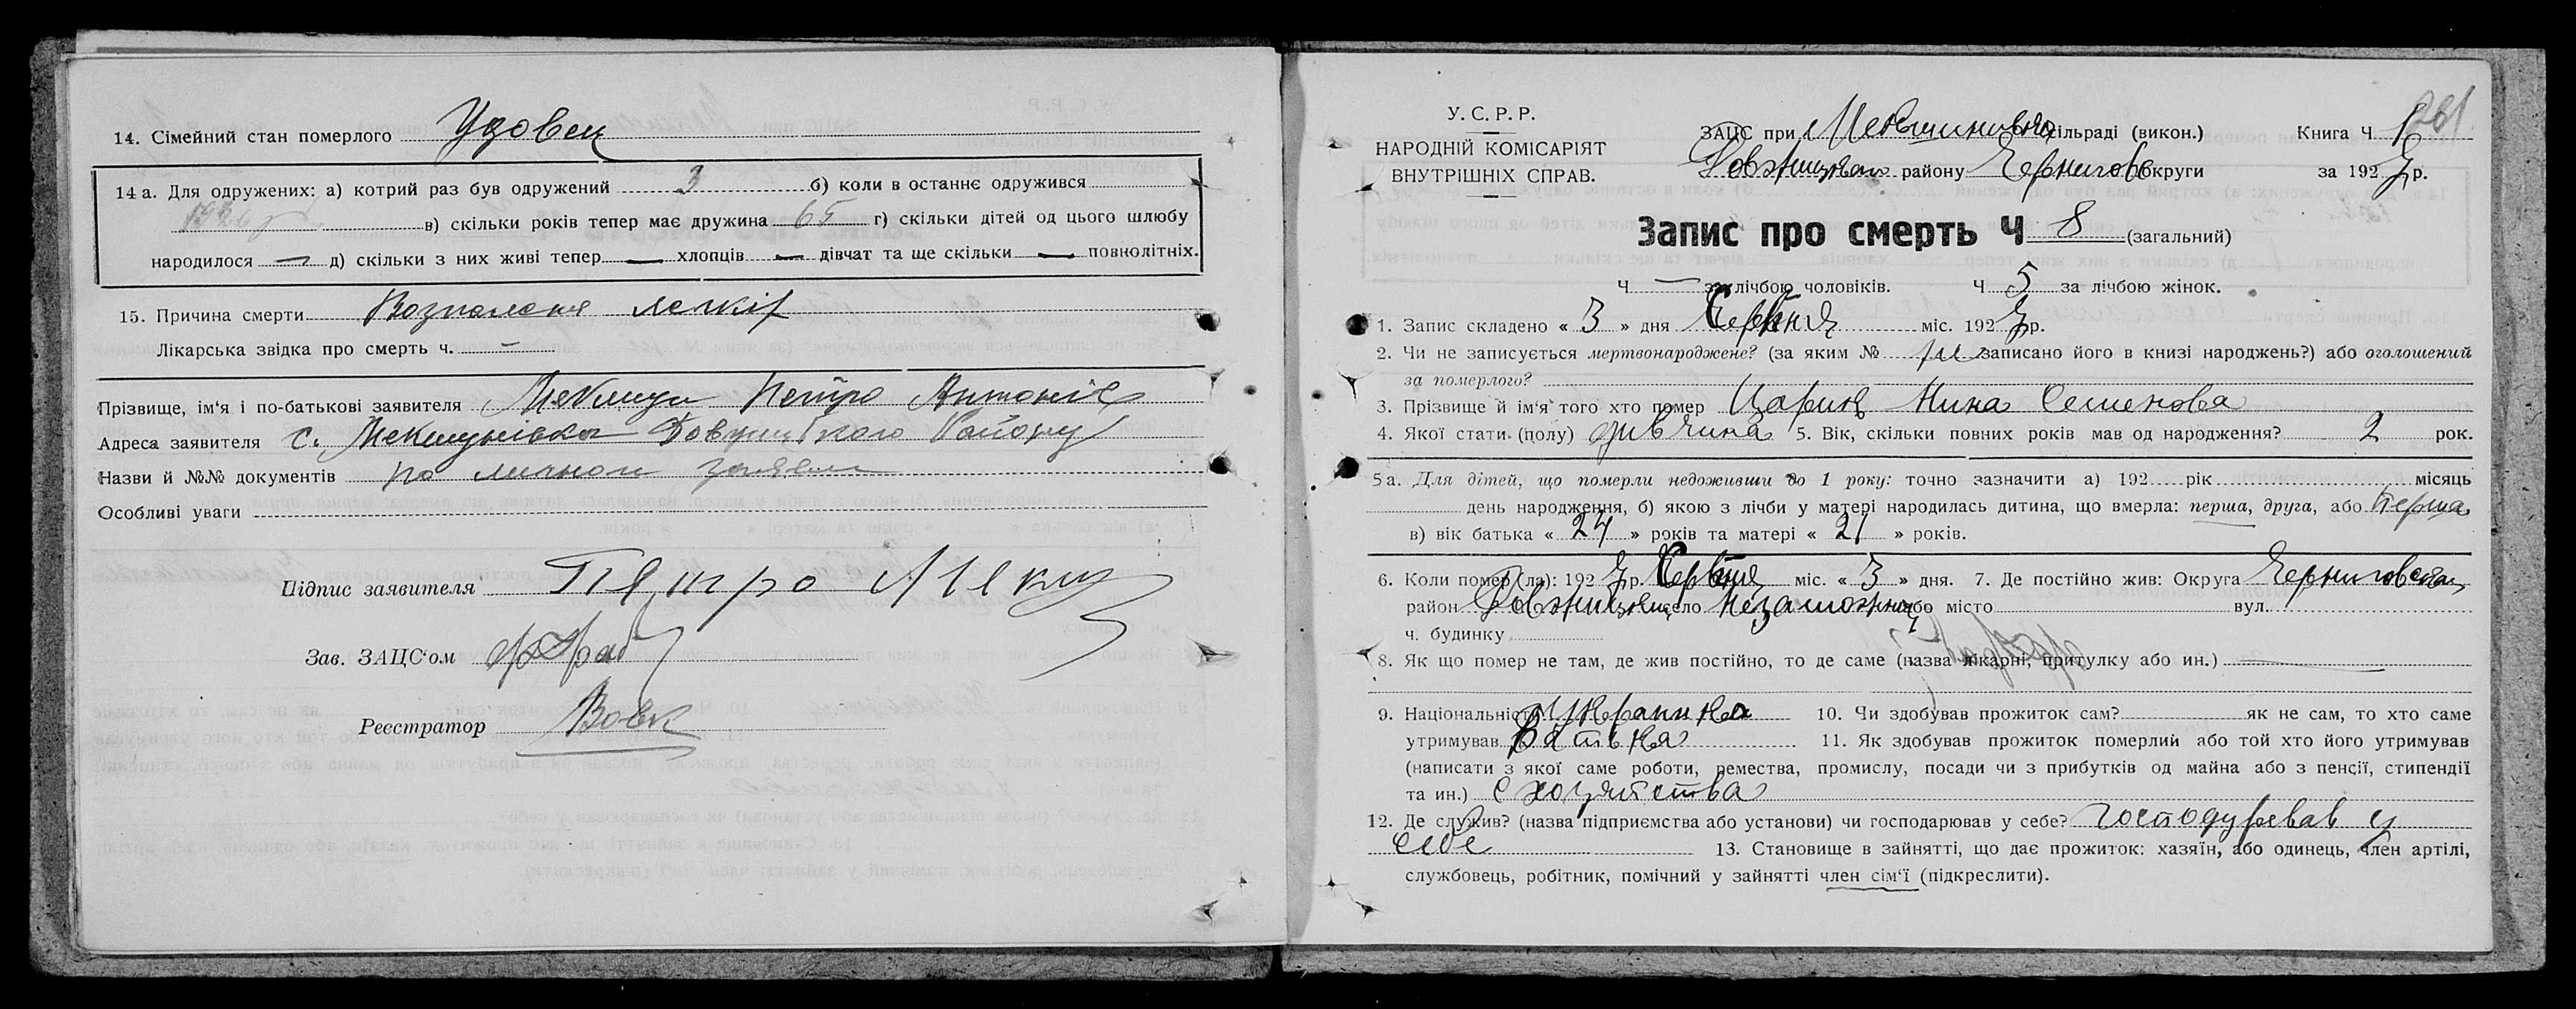 14. Сімейний стан померлого Удовец
14 а. Для одружених: а) котрий раз був одружений 3 б) коли в останнє одружився
в) скільки років тепер має дружина 65 г) скільки дітей од цього шлюбу
народилося — д) скільки з них живі тепер — хлопців — дівчат та ще скільки — повнолітніх.
15. Причина смерти Возпаленя легкіх
Лікарська звідка про смерть ч. —
Прізвище, ім'я і по-батькові заявителя Петро Антонів
Адреса заявителя с.
Назви й №№ документів по личном заяви
Особливі уваги
Підпис заявителя
Зав. ЗАЦС'ом
Реєстратор Вовк
261
У. С. Р. Р.
НАРОДНІЙ КОМІСАРІЯТ
ВНУТРІШНІХ СПРАВ.
ЗАЦС при сільраді (викон.) Книга Ч 1
району Черниговс округи за 1927 р.
Запис про смерть Ч 8 (загальний)
Ч — за лічбою чоловіків. Ч 5 за лічбою жінок.
1. Запис складено « 3 » дня Червня міс. 1927 р.
2. Чи не записується мертвонароджене? (за яким № ні записано його в книзі народжень?) або оголошений
за померлого?
3. Прізвище й ім'я того хто помер Нина Семенова
4. Якої стати (полу) дивчина 5. Вік, скільки повних років мав од народження? 2 рок.
5 а. Для дітей, що померли недоживши до 1 року: точно зазначити а) 192 рік місяць
день народження, б) якою з лічби у матері народилась дитина, що вмерла: перша, друга, або перша
в) вік батька « 27 » років та матері « 21 » років.
6. Коли помер (ла): 1927 р. Червня міс. « 3 » дня. 7. Де постійно жив: Округа Черниговская
район село Незаможнщ або місто вул.
ч. будинку
8. Як що помер не там, де жив постійно, то де саме (назва лікарні, притулку або ин.) —
9. Національність украинка 10. Чи здобував прожиток сам? як не сам, то хто саме
утримував батька 11. Як здобував прожиток померлий або той хто його утримував
(написати з якої саме роботи, ремества, промислу, посади чи з прибутків од майна або з пенсії, стипендії
та ин.) с хозяйства
12. Де служив? (назва підприємства або установи) чи господарював у себе? господурєвав у
себе 13. Становище в зайнятті, що дає прожиток: хазяїн, або одинець, член артілі,
службовець, робітник, помічний у зайнятті член сім'ї (підкреслити).